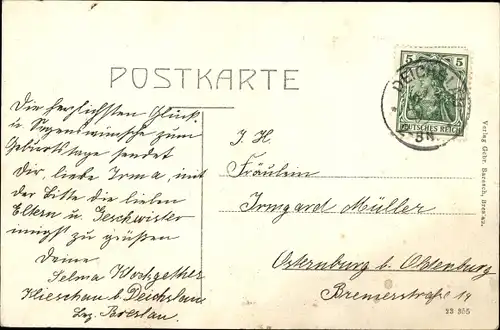 POSTKARTE
Die herzlichsten Glück-
u. Segenswünsche zum
Geburtstage sendet
dir, liebe Irma, mit
der Bitte die lieben
Eltern u. Geschwister
innigst zu grüßen
Deine
Selma
Klieschau b.
Bez. Breslau.
5 5
DEUTSCHES REICH
I. H.
Fräulein
Irmgard Müller
Osternburg b. Oldenburg
Bremerstraße 14
Verlag Gebr. Breslau.